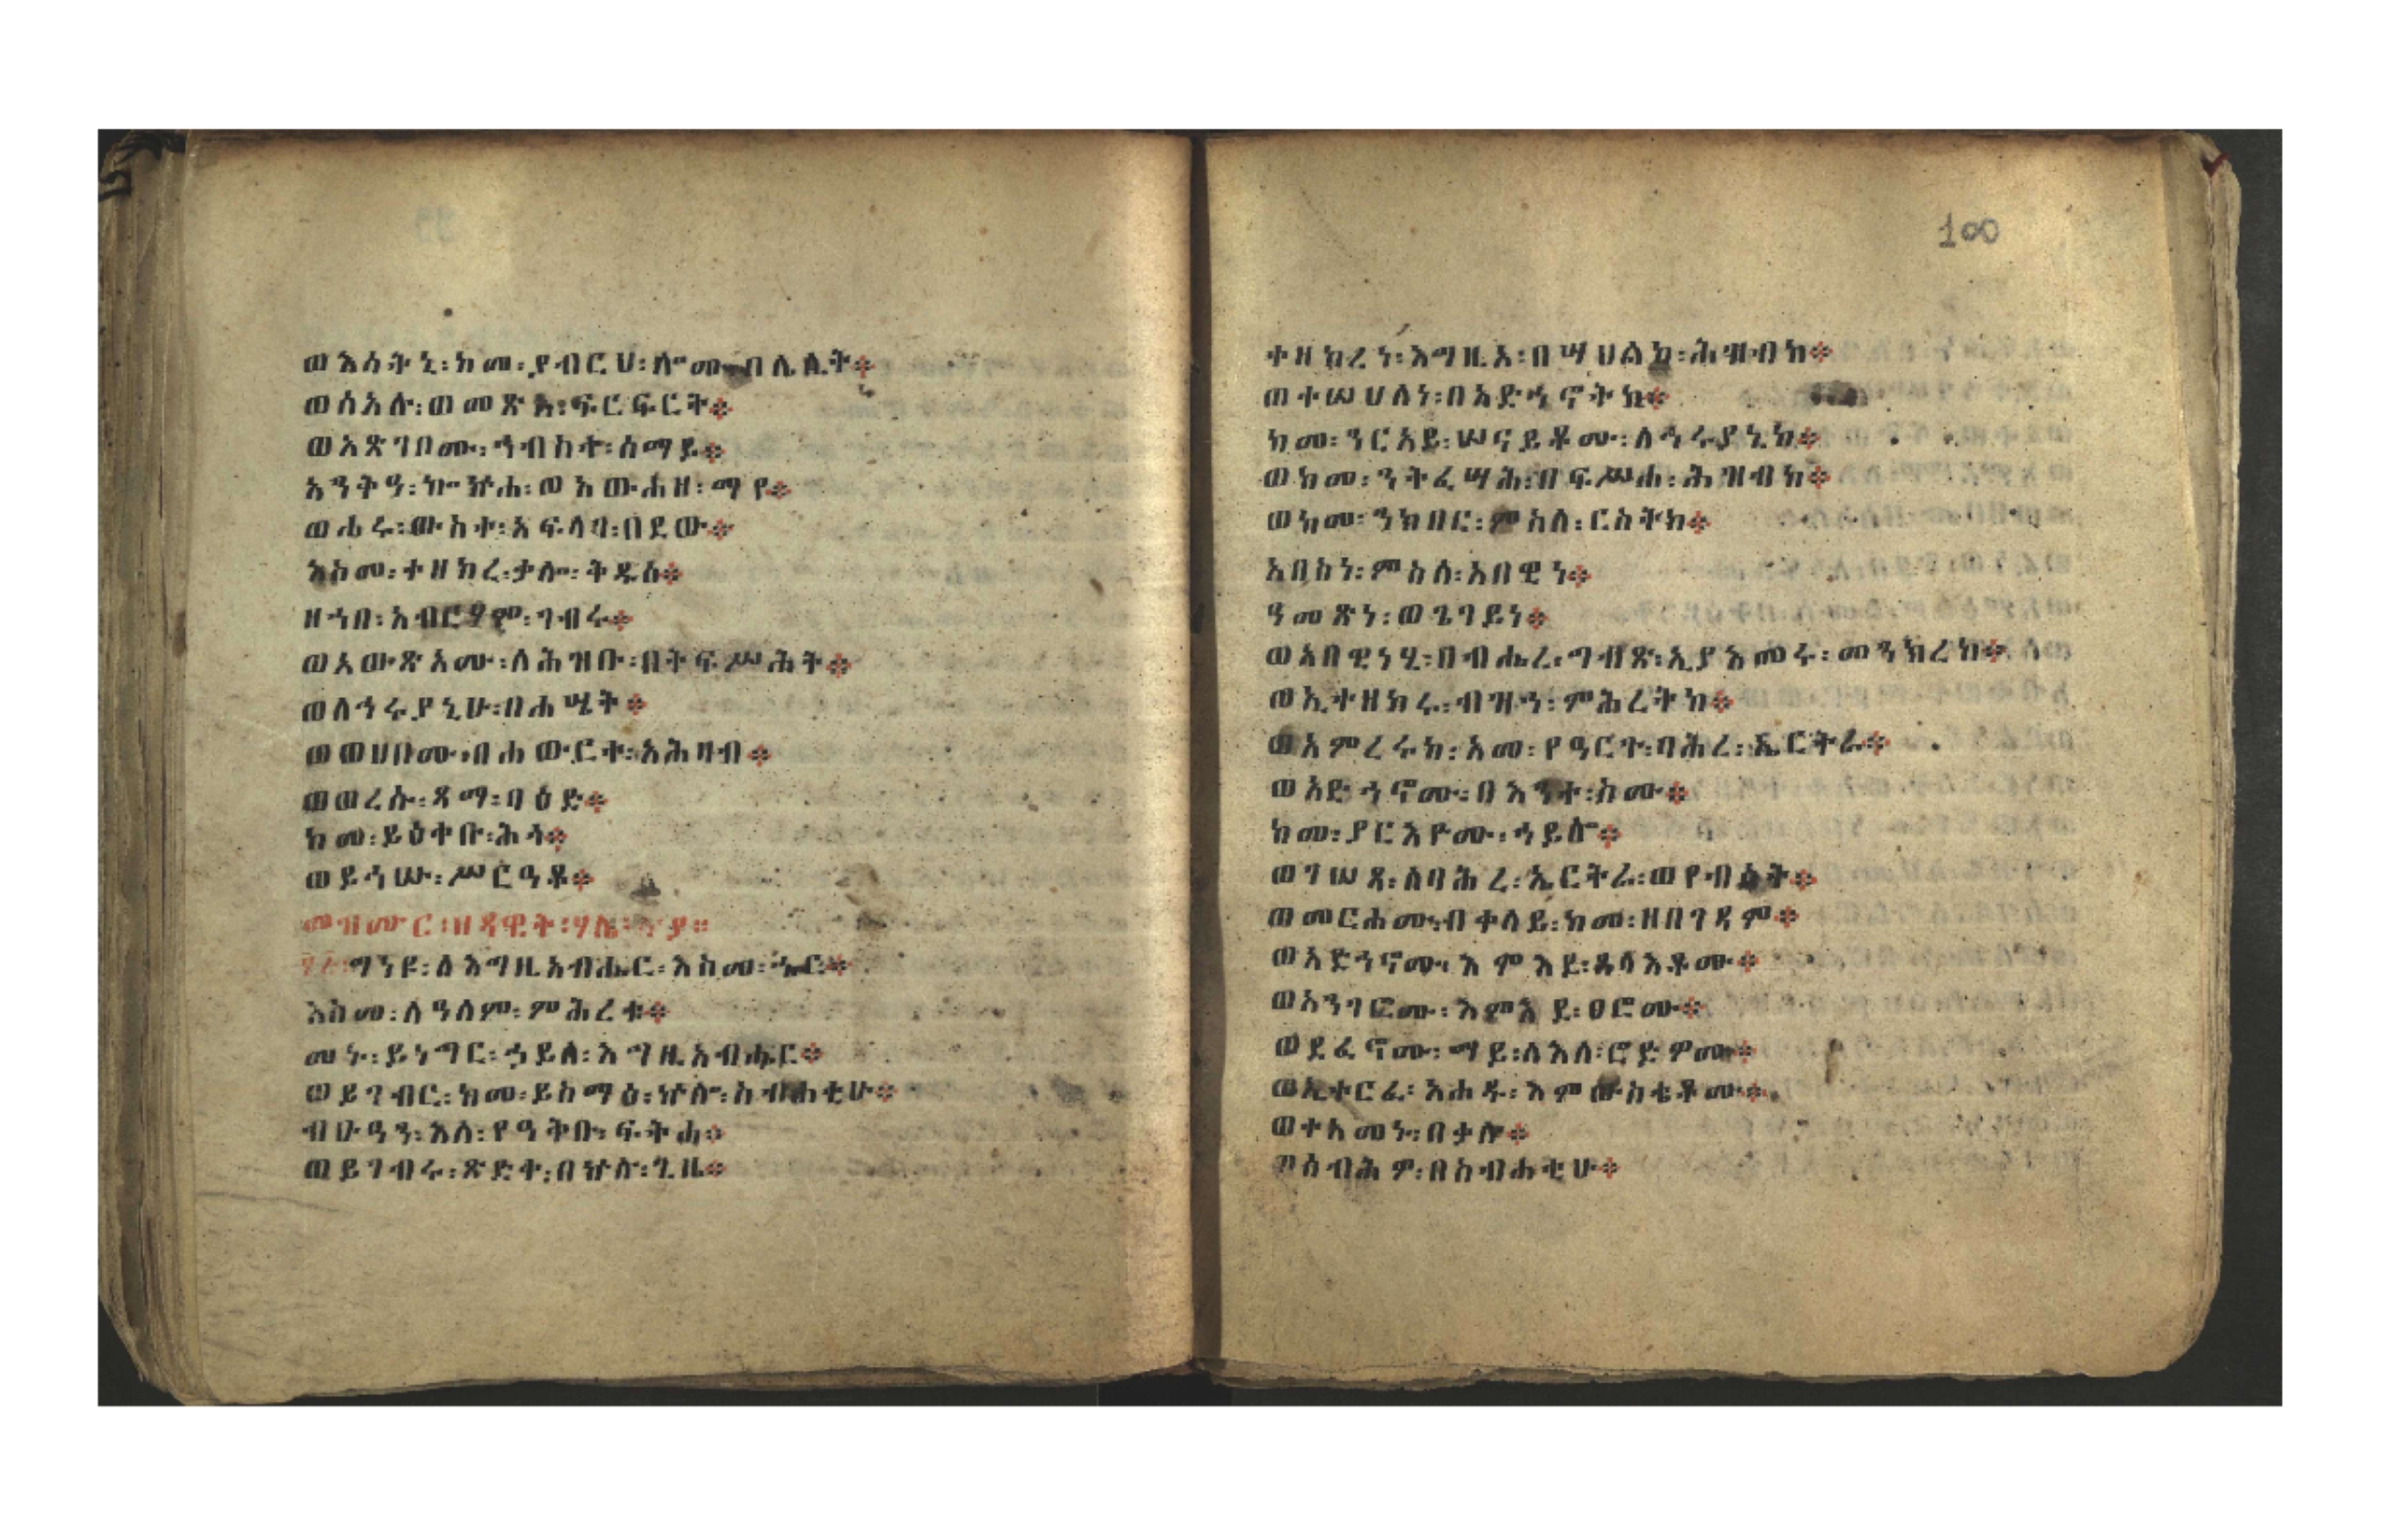 ወእሳትኒ፡ከመ፡ያብርህ፡ሎሙ፡በሌሊት።
ወሰአሉ፡ወመጽአ፡ፍርፍርት።
ወአጽገቦሙ፡ኅብስተ፡ሰማይ።
አንቅዓ፡ኰኵሐ፡ወአውሐዘ፡ማየ።
ወሖሩ፡ውስተ፡አፍላገ፡በደው።
እስመ፡ተዘከረ፡ቃሎ፡ቅዱሰ።
ዘኀበ፡አብርሃም፡ገብሩ።
ወአውጽኦሙ፡ለሕዝቡ፡በትፍሥሕት።
ወለኅሩያኒሁ፡በሐሤት።
ወወሀቦሙ፡በሐውርተ፡አሕዛብ።
ወወረሱ፡ጻማ፡ባዕድ።
ከመ፡ይዕቀቡ፡ሕጎ።
ወይኅሡ፡ሥርዓቶ።
መዝሙር፡ዘዳዊት፡ሃሌ፡ሉያ።
ግነዩ፡ለእግዚአብሔር፡እስመ፡ኄር።
እስመ፡ለዓለም፡ምሕረቱ።
መኑ፡ይነግር፡ኃይለ፡እግዚአብሔር።
ወይገብር፡ከመ፡ይስማዕ፡ኵሎ፡ስብሐቲሁ።
ብፁዓን፡እለ፡የዓቅቡ፡ፍትሐ።
ወይገብሩ፡ጽድቀ፡በኵሉ፡ጊዜ።
100
ተዘከረነ፡እግዚኦ፡በሣህልከ፡ሕዝብከ።
ወተሠሀለነ፡በአድኅኖትከ።
ከመ፡ንርአይ፡ሠናይቶሙ፡ለኅሩያኒከ።
ወከመ፡ንትፈሣሕ፡በፍሥሐ፡ሕዝብከ።
ወከመ፡ንክበር፡ምስለ፡ርስትከ።
አበስነ፡ምስለ፡አበዊነ።
ዓመጽነ፡ወጌገይነ።
ወአበዊነሂ፡በብሔረ፡ግብጽ፡ኢያእመሩ፡መንክረከ።
ወኢተዘከሩ፡ብዝኅ፡ምሕረትከ።
ወአምረሩከ፡አመ፡የዓርጉ፡ባሕረ፡ኤርትራ።
ወአድኅኖሙ፡በእንተ፡ስሙ።
ከመ፡ያርእዮሙ፡ኀይሎ።
ወገሠጻ፡ለባሕረ፡ኤርትራ፡ወየብሰት።
ወመርሖሙ፡በቀላይ፡ከመ፡ዘበገዳም።
ወአድኀኖሙ፡እምእደ፡ጸላእቶሙ።
ወአንገፎሙ፡እምእደ፡ፀሮሙ።
ወደፈኖሙ፡ማይ፡ለእለ፡ሮድዎሙ።
ወኢተርፈ፡አሐዱ፡እምውስቴቶሙ።
ወተአመኑ፡በቃሉ።
ወሰብሕዎ፡በስብሐቲሁ።